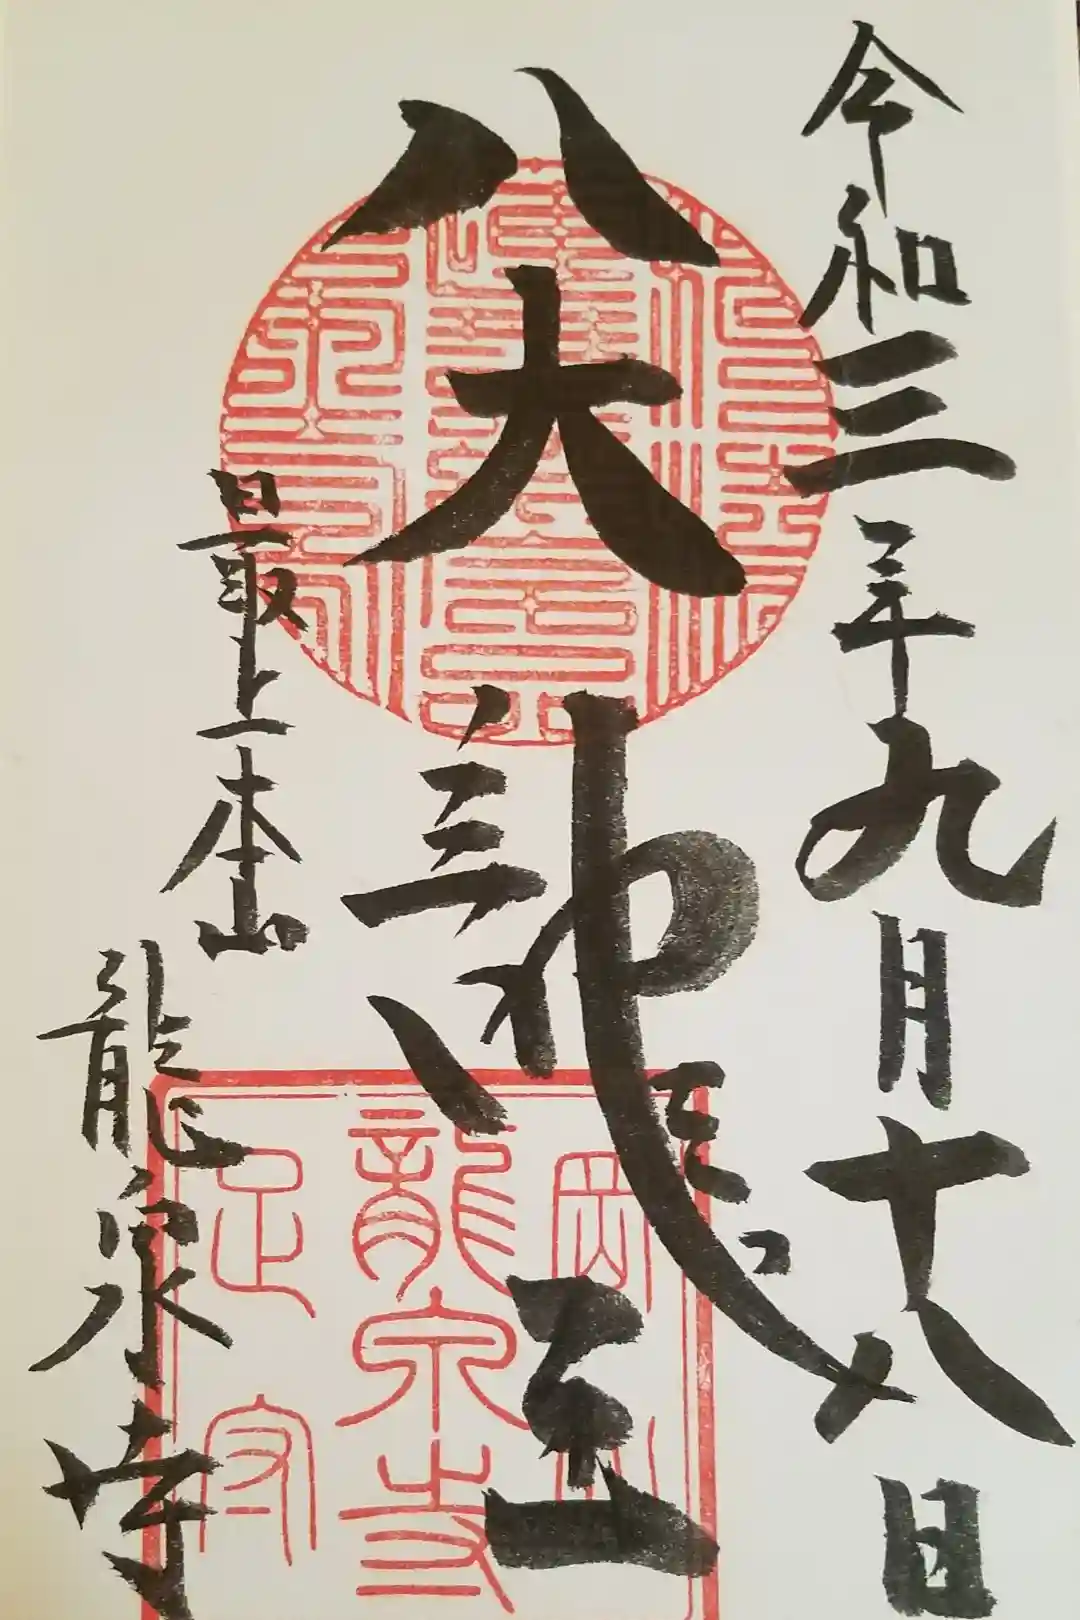 令和三年九月十八日
八大龍王
最上本山
龍泉寺
岡山
龍泉寺
足守